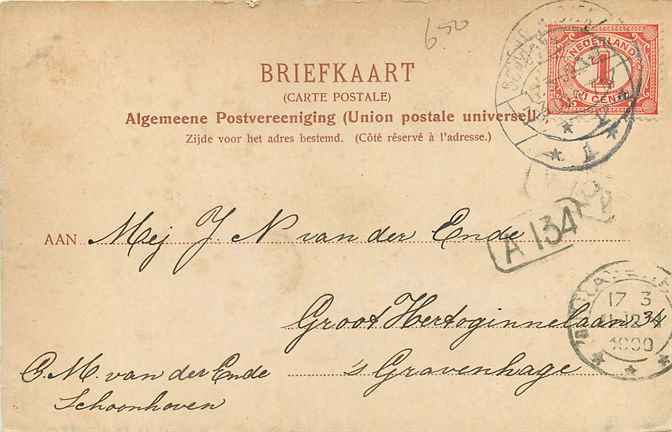 650
NEDERLAND
1
CENT
BRIEFKAART
(CARTE POSTALE)
Algemeene Postvereeniging (Union postale universelle)
Zijde voor het adres bestemd. (Côté réservé à l'adresse.)
AAN Mej J. N van der Ende
A 134
Groot Hertoginnelaan 34
's Gravenhage
17 3
P. M. van der Ende
Schoonhoven